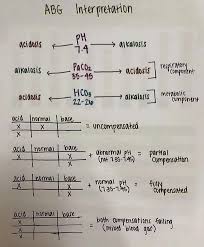 ABG Interpretation
acidosis ← PH 7.4 → alkalosis
alkalosis ← PaCO2 35-45 → acidosis ] respiratory component
acidosis ← HCO3 22-26 → alkalosis ] metabolic component
acid normal base
x x
x
= uncompensated
acid normal base
x
x
x
+ abnormal pH (not 7.35-7.45) = partial compensation
acid normal base
x
x
x
+ normal pH (7.35-7.45) = fully compensated
acid normal base
x
x
x
= both compensations failing (mixed blood gas)